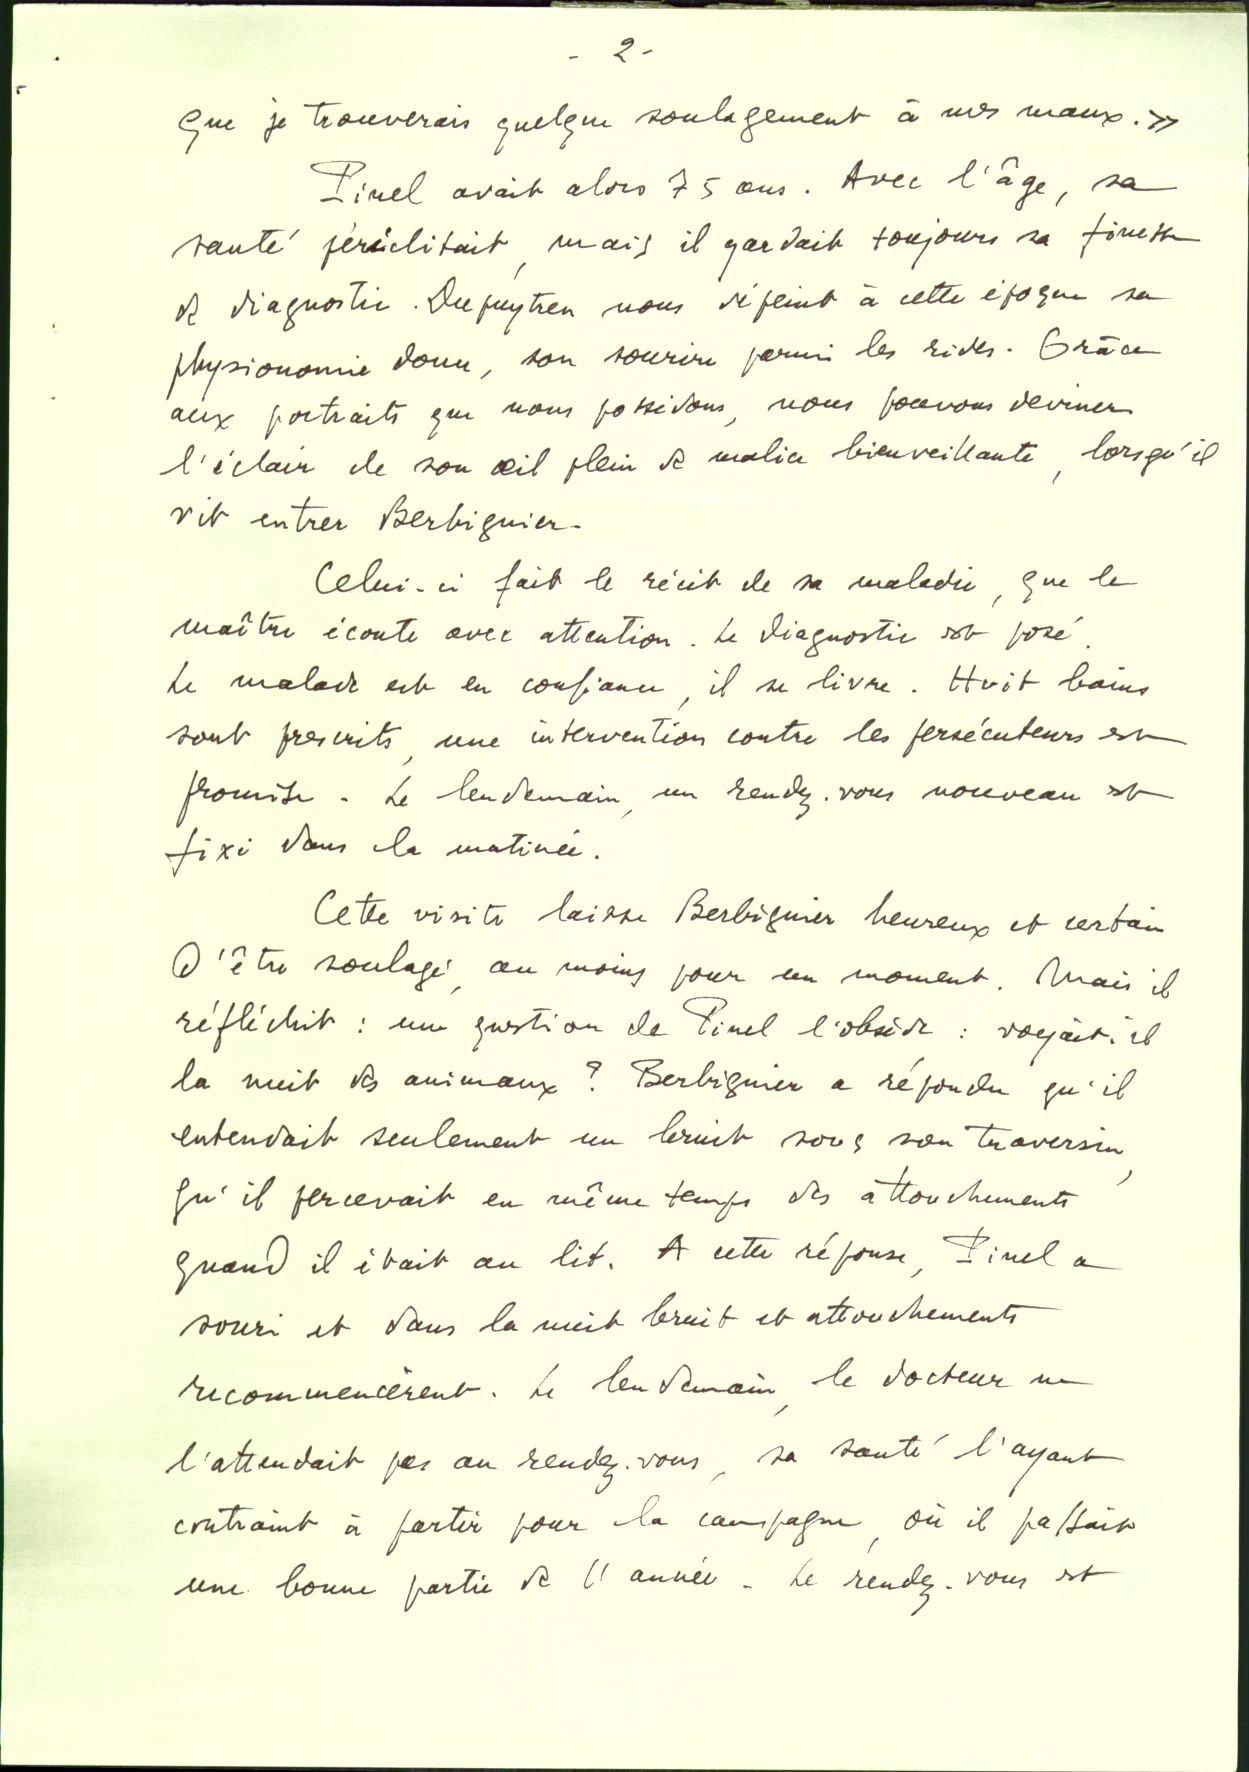 - 2 -
que je trouverais quelque soulagement à mes maux. »
Pinel avait alors 75 ans. Avec l'âge, sa
santé périclitait, mais il gardait toujours sa finesse
de diagnostic. Dupuytren nous dépeint à cette époque sa
physionomie douce, son sourire parmi les rides. Grâce
aux portraits que nous possédons, nous pouvons deviner
l'éclair de son œil plein de malice bienveillante, lorsqu'il
vit entrer Berbiguier.
Celui-ci fait le récit de sa maladie, que le
maître écoute avec attention. Le diagnostic est posé.
Le malade est en confiance, il se livre. Huit bains
sont prescrits, une intervention contre les persécuteurs est
promise. Le lendemain, un rendez-vous nouveau est
fixé dans la matinée.
Cette visite laisse Berbiguier heureux et certain
d'être soulagé, au moins pour un moment. Mais il
réfléchit : une question de Pinel l'obsède : voyait-il
la nuit des animaux ? Berbiguier a répondu qu'il
entendait seulement un bruit sous son traversin,
qu'il percevait en même temps des attouchements
quand il était au lit. A cette réponse, Pinel a
souri et dans la nuit bruit et attouchements
recommencèrent. Le lendemain, le docteur ne
l'attendait pas au rendez-vous, sa santé l'ayant
contraint à partir pour la campagne, où il passait
une bonne partie de l'année. Le rendez-vous est